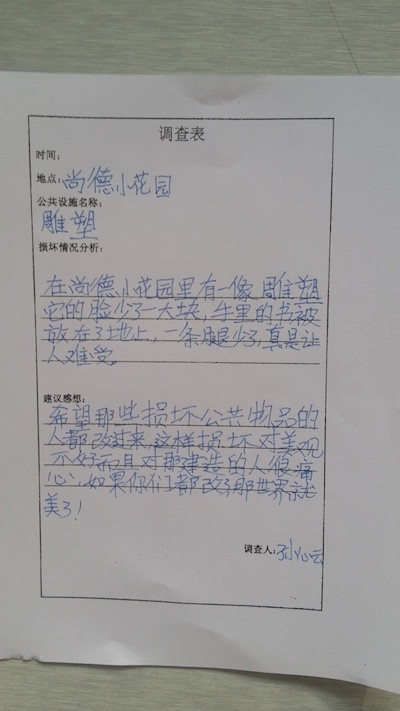 调查表
时间：
地点：尚德小花园
公共设施名称：
雕塑
损坏情况分析：
在尚德小花园里有一像雕塑
它的脸少了一大块，手里的书被
放在了地上，一条腿少了，真是让
人难受。
建议感想：
希望那些损坏公共物品的
人都改过来，这样损坏对美观
不好而且对那建造的人很痛
心，如果你们都改了那世界就
美了！
调查人：孙心云